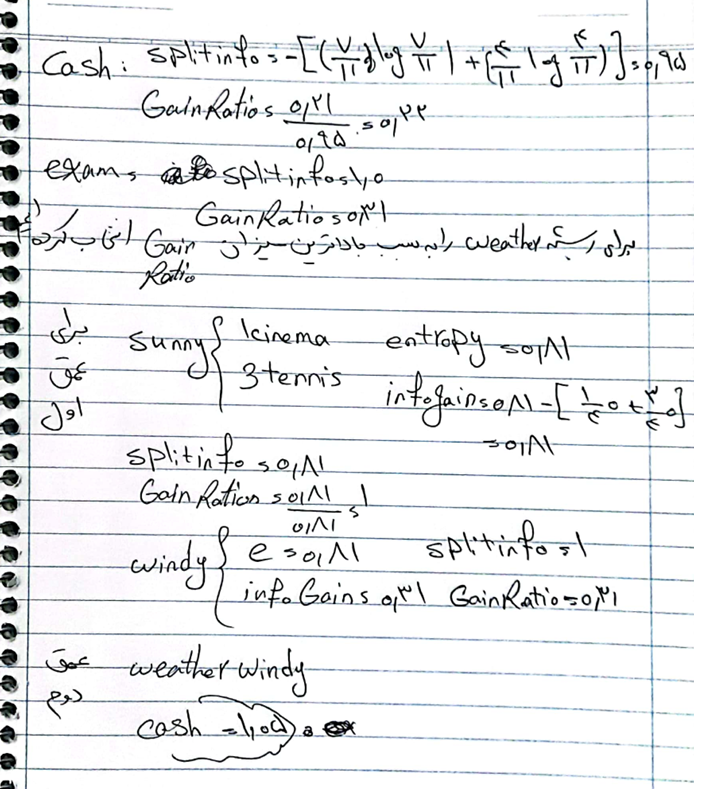 Cash: splitinfo = -[(۷/۱۱) log ۷/۱۱) + (۴/۱۱ log ۴/۱۱)] = ۰,۹۵
GainRatio = ۰,۲۱/۰,۹۵ = ۰,۲۲
exam = splitinfo = ۱,۰
GainRatio = ۰,۳۱
برای ریشه weather را به سبب بالاترین میزان Gain Ratio انتخاب کرده
برای عمق اول
sunny { 1cinema entropy = ۰,۸۱
3tennis infogain = ۰,۸۱ - [۱/۴ ۰ + ۳/۴ ۰]
= ۰,۸۱
splitinfo = ۰,۸۱
Gain Ration = ۰,۸۱/۰,۸۱ = ۱
windy { e = ۰,۸۱ splitinfo = ۱
infoGain = ۰,۳۱ GainRatio = ۰,۳۱
عمق دوم
weather windy
cash = ۱,۰۵